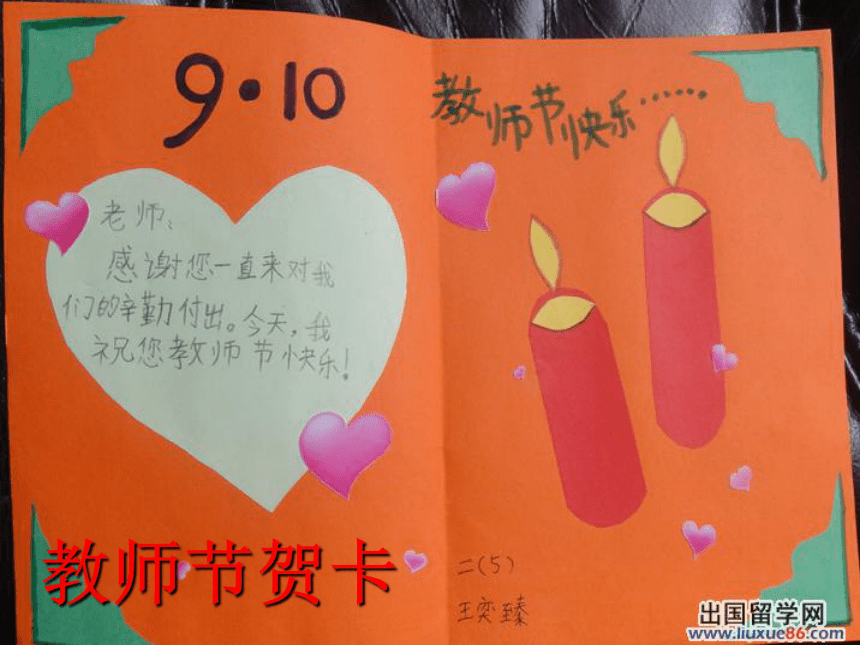 9·10
老师：
感谢您一直来对我
们的辛勤付出。今天，我
祝您教师节快乐！
教师节贺卡
教师节快乐……
二（5）
王奕臻
出国留学网
www.liuxue86.com